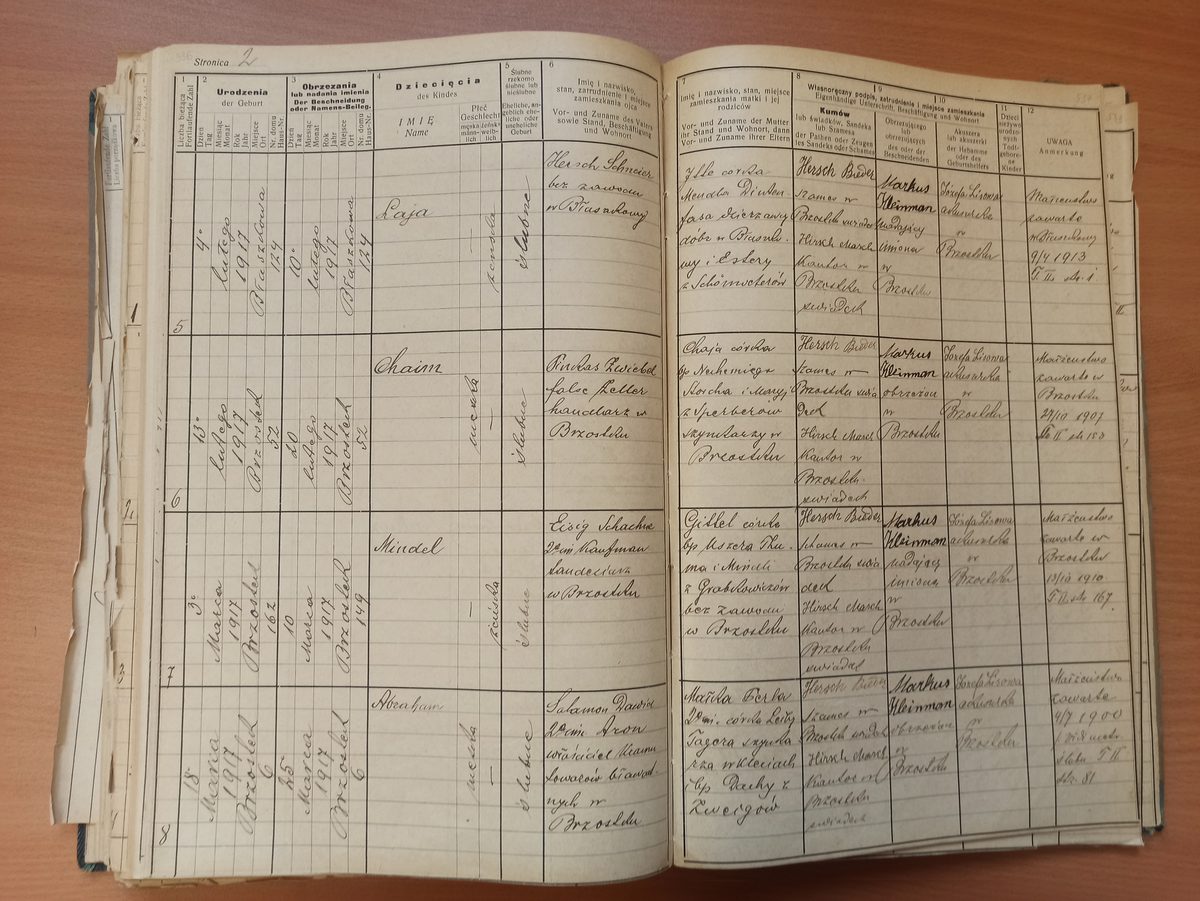 Stronica 2
1
Liczba bieżąca
Fortlaufende Zahl
2
Urodzenia
der Geburt
Dzień
Tag
Miesiąc
Monat
Rok
Jahr
Miejsce
Ort
Nr. domu
Haus-Nr.
3
Obrzezania
lub nadania imienia
Der Beschneidung
oder Namens-Beileg.
Dzień
Tag
Miesiąc
Monat
Rok
Jahr
Miejsce
Ort
Nr. domu
Haus-Nr.
4
Dziecięcia
des Kindes
IMIĘ
Name
Płeć
Geschlecht
męska
männ-
lich
żeńska
weib-
lich
5
Ślubne
rzekomo
ślubne lub
nieślubne
Eheliche, an-
geblich ehe-
liche oder
uneheliche
Geburt
6
Imię i nazwisko,
stan, zatrudnienie i miejsce
zamieszkania ojca
Vor- und Zuname des Vaters
sowie Stand, Beschäftigung
und Wohnort
7
Imię i nazwisko, stan, miejsce
zamieszkania matki i jej
rodziców
Vor- und Zuname der Mutter
ihr Stand und Wohnort, dann
Vor- und Zuname ihrer Eltern
8
9
10
Własnoręczny podpis, zatrudnienie i miejsce zamieszkania
Eigenhändige Unterschrift, Beschäftigung und Wohnort
Kumów
lub świadków, Sandeka
lub Szamesa
der Pathen oder Zeugen
des Sandeks oder Schames
Obrzezującego
lub
obrzezujących
des oder der
Beschneidenden
Akuszera
lub akuszerki
der Hebamme
oder des
Geburtshelfers
11
Dzieci
nieżywo
urodzo-
nych
Todt-
gebore-
ne
Kinder
12
UWAGA
Anmerkung
5
4°
lutego
1917
Błaszkowa
124
10°
lutego
1917
Błaszkowa
124
Łaja
żeńska
ślubne
Hersch Schneier
bez zawodu
w Błaszkowy
Ytte córka
Mendla
dzierzawy
dóbr w Błaszko
wy i Estery
Hersch Bieder
szames w
Brzostku
Hirsch March
Kantor w
Brzostku
swiadek
Markus
Kleinman
nadający
imiona
w
Brzostku
Józefa Lisowa
akuszerka
w
Brzostku
Małżenstwo
zawarte
w Błaszkowy
9/4 1913
T. II str. 1.
6
13°
lutego
1917
Brzostek
52
20
lutego
1917
Brzostek
52
Chaim
męska
ślubne
Pinkas Zwiebel
false Zeller
handlarz w
Brzostku
Chaja córka
bp Nechemiego
Storcha i Maryj
z Sperberów
szynkarzy w
Brzostku
Hersch Bieder
Szames w
Brzostku swia
dek
Hirsch March
Kantor w
Brzostku
swiadek
Markus
Kleinman
obrzezou
w
Brzostku
Józefa Lisowa
akuszerka
w
Brzostku
Małżenstwo
zawarte w
Brzostku
29/10 1907
T. II str 150
7
3°
Marca
1917
Brzostek
162
10
Marca
1917
Brzostek
149
Mindel
żeńska
ślubne
Eisig Schachne
2ga im Kaufman
tandeciarz
w Brzostku
Gittel córka
bp Uszera Thu-
ma i Mindli
z Grabkowiczów
bez zawodu
w Brzostku
Hersch Bieder
Schames w
Brzostku swia
dek
Hirsch March
Kantor w
Brzostku
swiadek
Markus
Kleinman
nadający
imiona
w
Brzostku
Józefa Lisowa
akuszerka
w
Brzostku
Małżenstwo
zawarte w
Brzostku
13/10 1910
T. II str 167.
8
18°
Marca
1917
Brzostek
6
25
Marca
1917
Brzostek
6
Abraham
męska
ślubne
Salamon Dawid
2ga im Aron
właściciel kramu
towarów bławat
nych w
Brzostku
Małka Perla
2ga im. córka
Tagera szynka
rza w Kleciach
i bp Dachy z
Zweigów
Hersch Bieder
Szames w
Brzostku swiadek
Hirsch March
Kantor w
Brzostku
swiadek
Markus
Kleinman
obrzezou
w
Brzostku
Józefa Lisowa
akuszerka
w
Brzostku
Małżenstwo
zawarte
4/7 1900
T II
str. 81